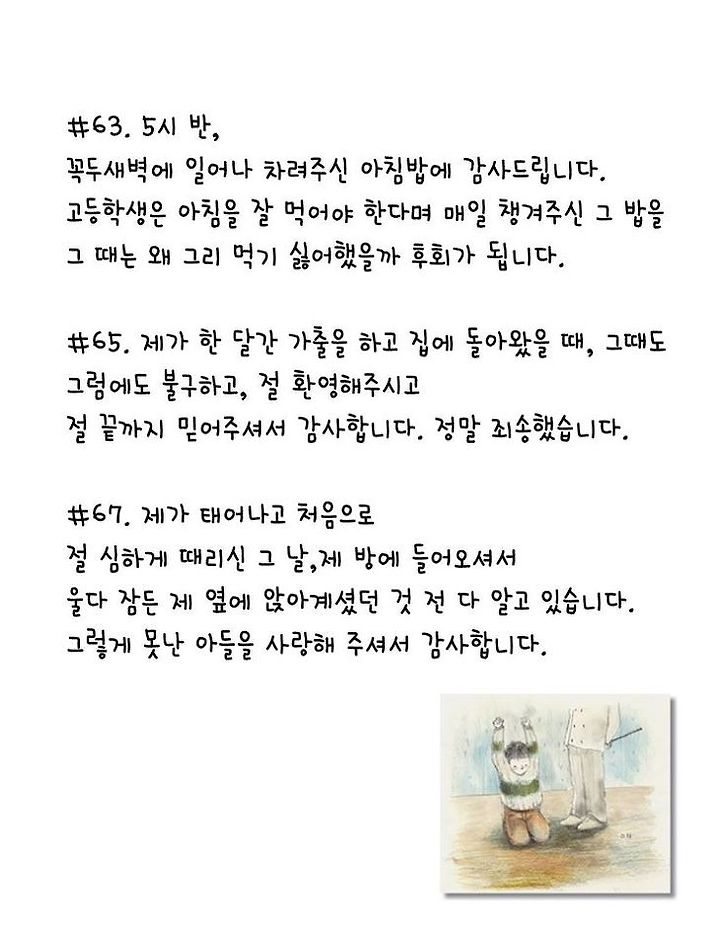 #63. 5시 반,
꼭두새벽에 일어나 차려주신 아침밥에 감사드립니다.
고등학생은 아침을 잘 먹어야 한다며 매일 챙겨주신 그 밥을
그 때는 왜 그리 먹기 싫어했을까 후회가 됩니다.
#65. 제가 한 달간 가출을 하고 집에 돌아왔을 때, 그때도
그럼에도 불구하고, 절 환영해주시고
절 끝까지 믿어주셔서 감사합니다. 정말 죄송했습니다.
#67. 제가 태어나고 처음으로
절 심하게 때리신 그 날,제 방에 들어오셔서
울다 잠든 제 옆에 앉아계셨던 것 전 다 알고 있습니다.
그렇게 못난 아들을 사랑해 주셔서 감사합니다.